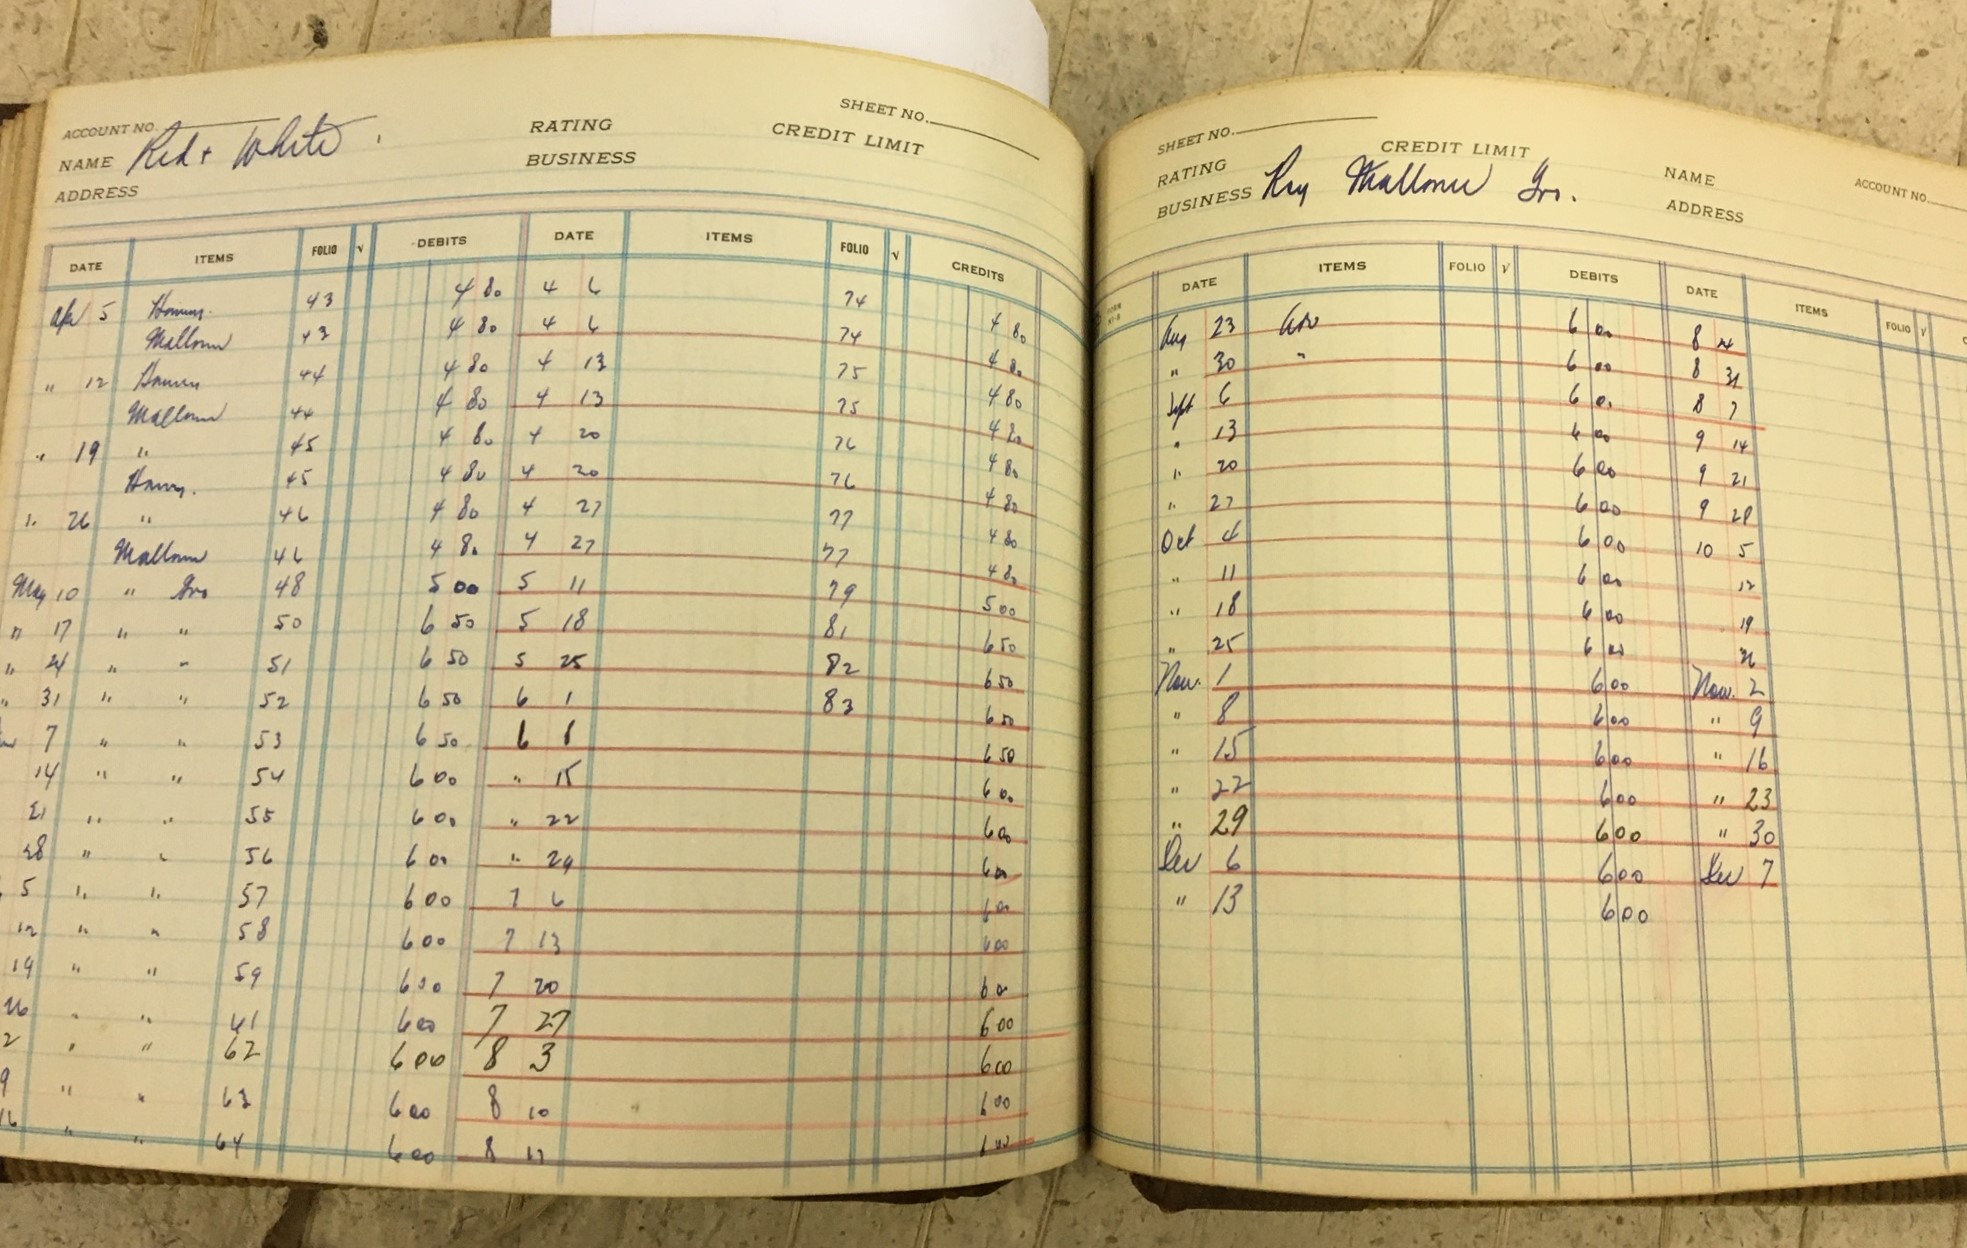 SHEET NO.
ACCOUNT NO. RATING CREDIT LIMIT
NAME Red + White BUSINESS
ADDRESS
DATE ITEMS FOLIO √ DEBITS DATE ITEMS FOLIO √ CREDITS
Apr 5 43 4 80 4 6 74 4 80
Mallonee 43 4 80 4 6 74 4 80
" 12 44 4 80 4 13 75 4 80
Mallonee 44 4 80 4 13 75 4 80
" 19 " 45 4 80 4 20 76 4 80
45 4 80 4 20 76 4 80
" 26 " 46 4 80 4 27 77 4 80
Mallonee 46 4 80 4 27 77 4 80
May 10 " Gro 48 5 00 5 11 79 5 00
" 17 " " 50 6 50 5 18 81 6 50
" 24 " " 51 6 50 5 25 82 6 50
" 31 " " 52 6 50 6 1 83 6 50
7 " " 53 6 50 6 8 6 50
14 " " 54 6 00 " 15 6 00
21 " " 55 6 00 " 22 6 00
28 " " 56 6 00 " 29 6 00
5 " " 57 6 00 7 6 6 00
12 " " 58 6 00 7 13 6 00
19 " " 59 6 00 7 20 6 00
26 " " 61 6 00 7 27 6 00
2 " " 62 6 00 8 3 6 00
9 " " 63 6 00 8 10 6 00
16 " " 64 6 00 8 17 6 00
SHEET NO. CREDIT LIMIT
RATING NAME ACCOUNT NO.
BUSINESS Roy Mallonee Gro. ADDRESS
DATE ITEMS FOLIO √ DEBITS DATE ITEMS FOLIO √
Aug 23 Adv 6 00 8 24
" 30 " 6 00 8 31
Sept 6 6 00 8 7
" 13 6 00 9 14
" 20 6 00 9 21
" 27 6 00 9 28
Oct 4 6 00 10 5
" 11 6 00 12
" 18 6 00 19
" 25 6 00 26
Nov. 1 6 00 Nov. 2
" 8 6 00 " 9
" 15 6 00 " 16
" 22 6 00 " 23
" 29 6 00 " 30
Dec 6 6 00 Dec 7
" 13 6 00